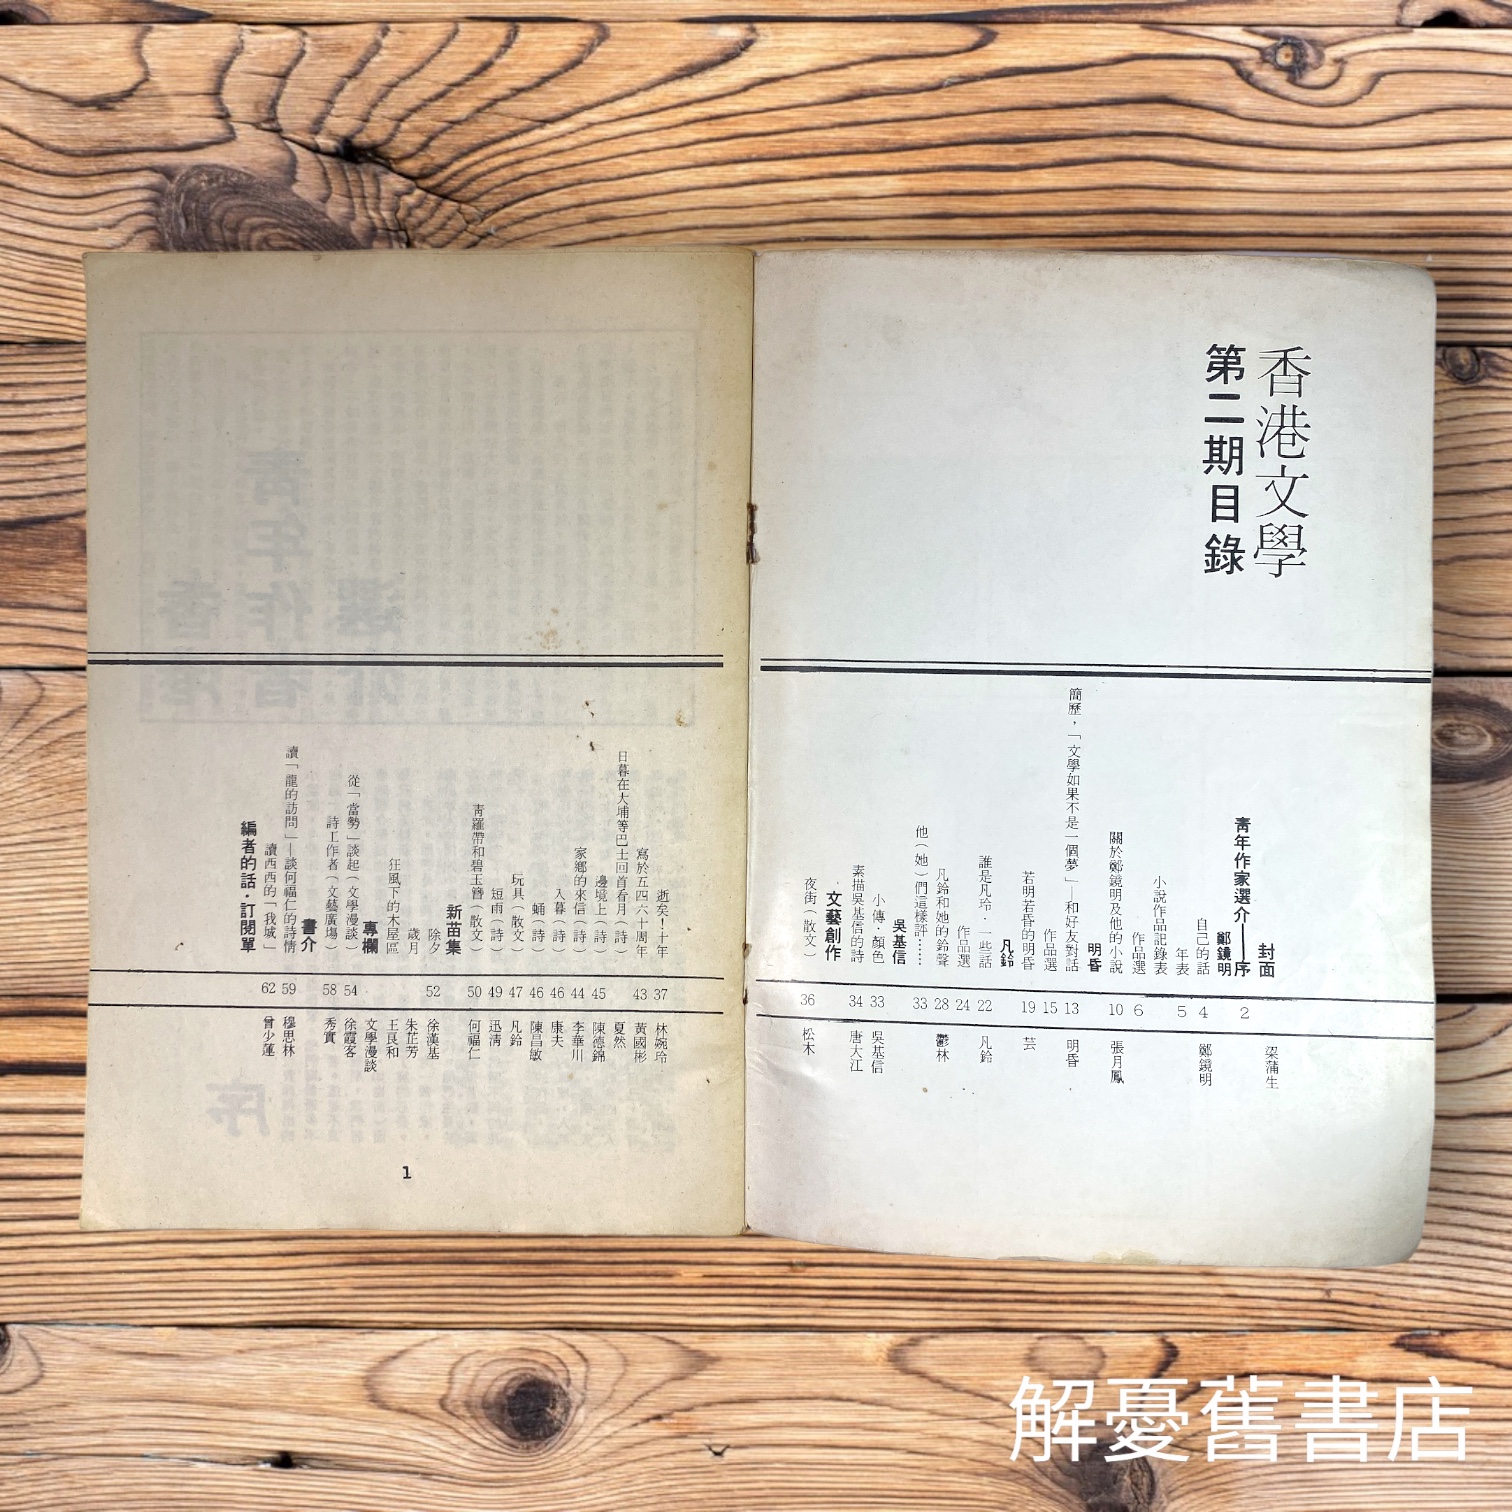 香港文學
第二期目錄
封面 梁蒲生
青年作家選介——序 2
鄭鏡明
自己的話 4 鄭鏡明
年表 5
小說作品記錄表
作品選 6
關於鄭鏡明及他的小說 10 張月鳳
明昏
簡歷，「文學如果不是一個夢」—和好友對話 13 明昏
作品選 15
若明若昏的明昏 19 芸
凡鈴
誰是凡玲·一些話 22 凡鈴
作品選 24
凡鈴和她的鈴聲 28 鬱林
他（她）們這樣評…… 33
吳基信
小傳·顏色 33 吳基信
素描吳基信的詩 34 唐大江
文藝創作
夜街（散文） 36 松木
逝矣！十年 37 林婉玲
寫於五四六十周年 43 黃國彬
日暮在大埔等巴士回首看月（詩） 夏然
邊境上（詩） 45 陳德錦
家鄉的來信（詩） 44 李華川
入暮（詩） 46 康夫
蛹（詩） 46 陳昌敏
玩具（散文） 47 凡鈴
短雨（詩） 49 迅清
靑羅帶和碧玉簪（散文） 50 何福仁
新苗集
除夕 52 徐漢基
歲月 朱芷芳
狂風下的木屋區 王良和
專欄 文學漫談
從「當勢」談起（文學漫談） 54 徐霞客
詩工作者（文藝廣塲） 58 秀實
書介
讀「龍的訪問」—談何福仁的詩情 59 穆思林
讀西西的「我城」 62 曾少蓮
編者的話·訂閱單
1
解憂舊書店